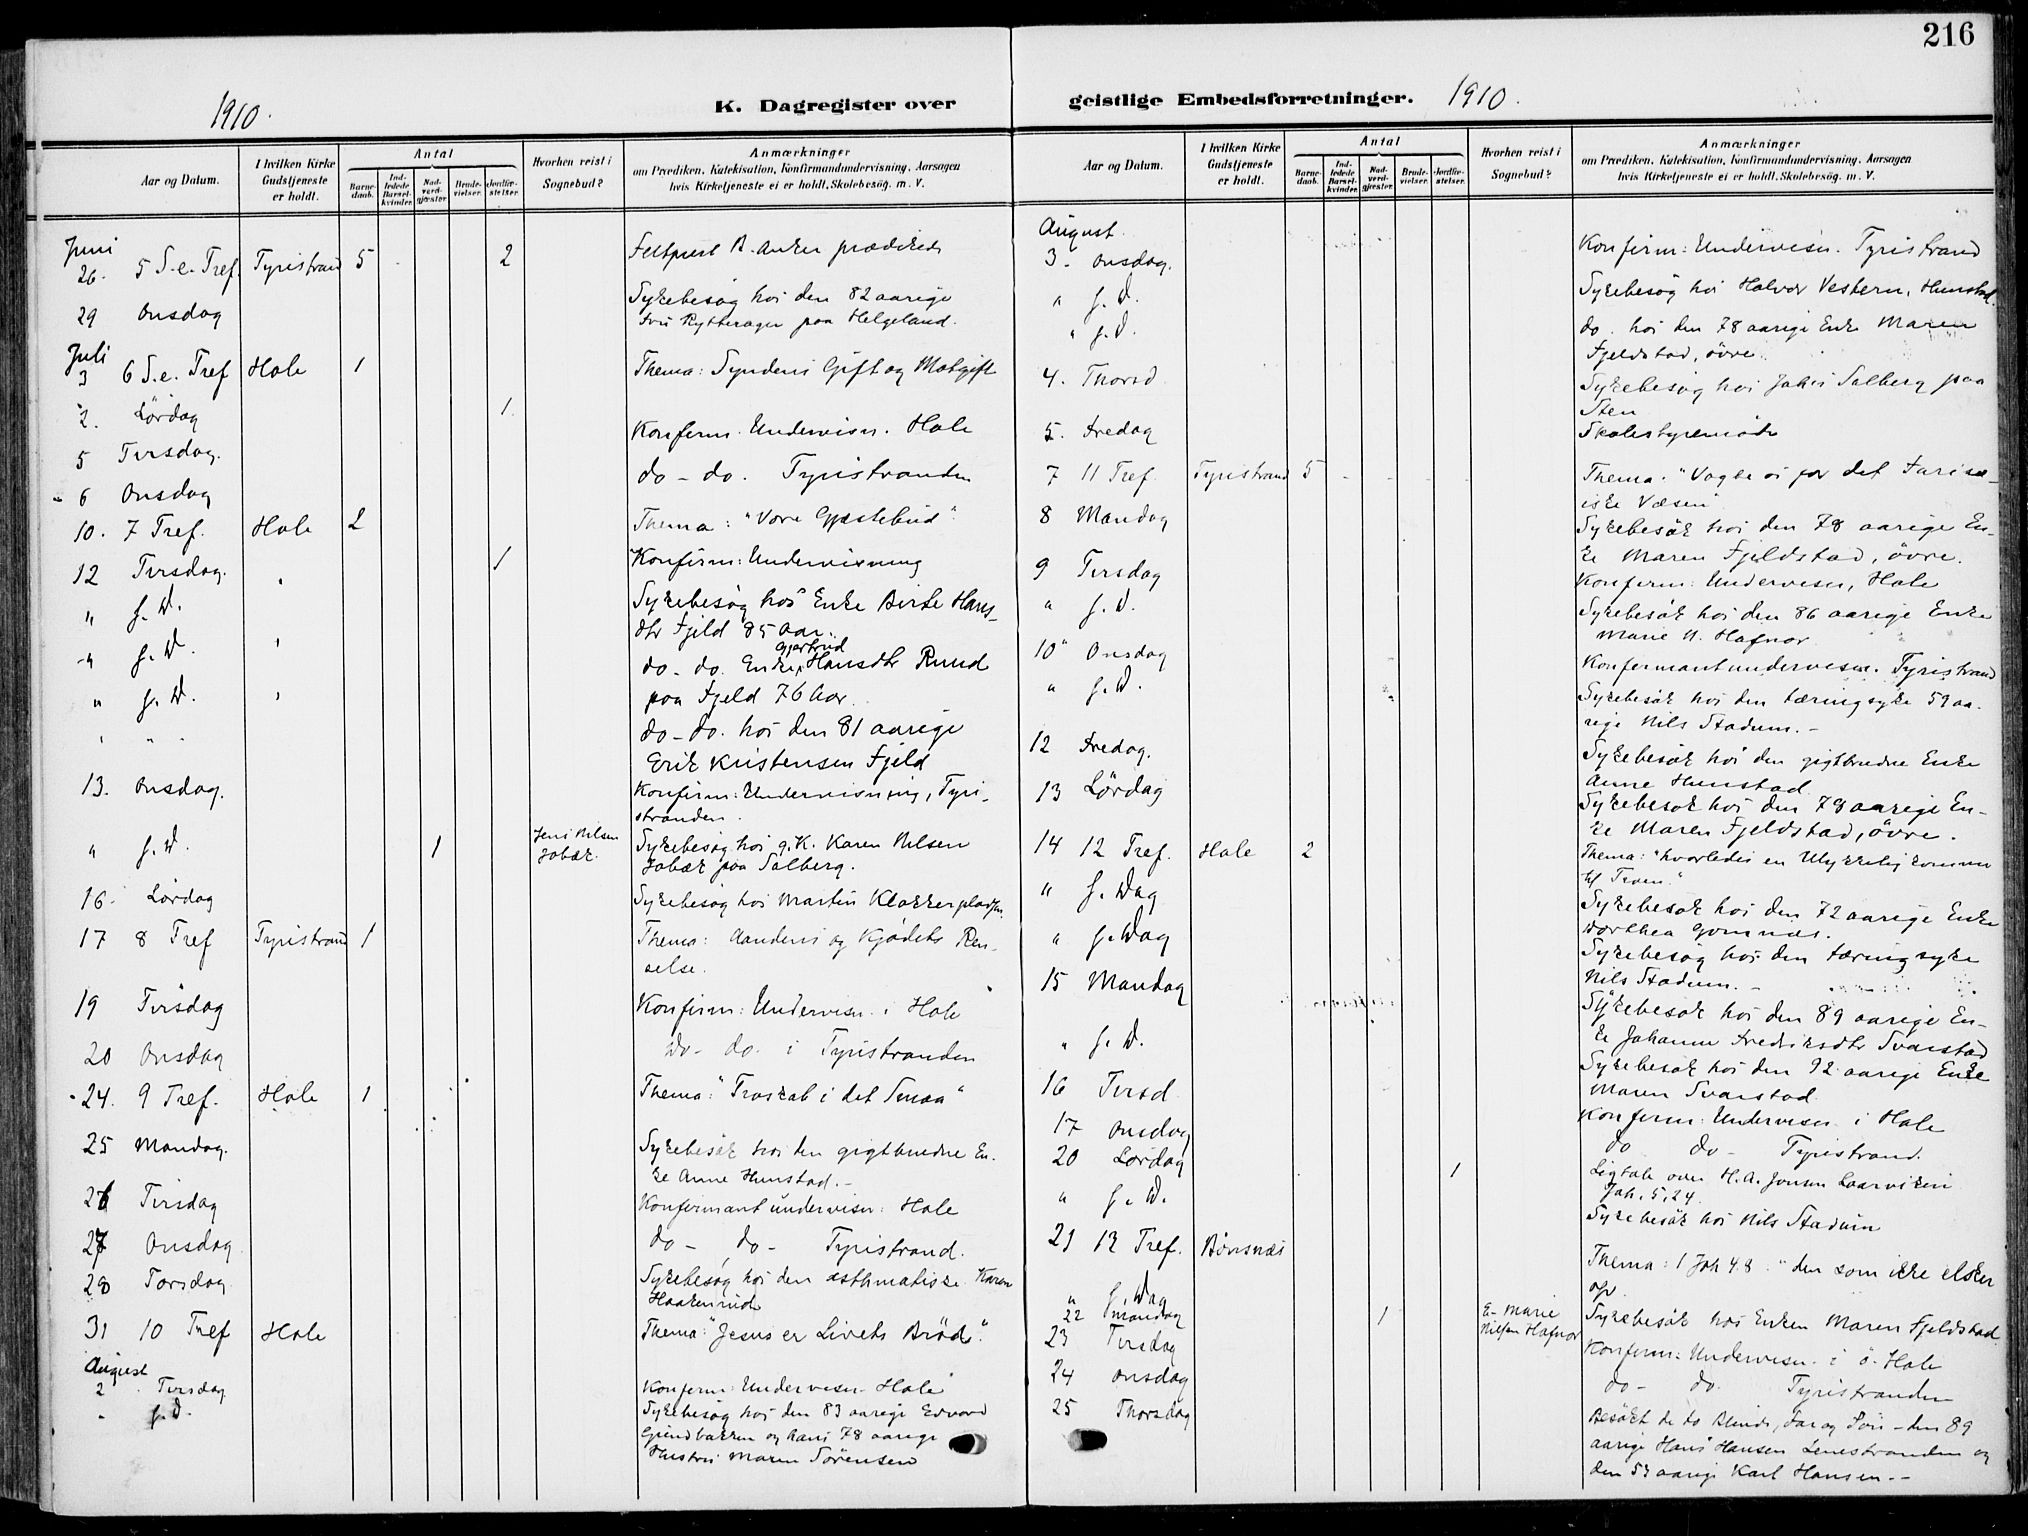 216
1910.
K. Dagregister over
geistlige Embedsforretninger. 1910.
Aar og Datum.
I hvilken Kirke Gudstjeneste er holdt.
Antal
Barnedaab.
Indledede Barselkvinder.
Nadverdgjæster.
Brudevielser.
Jordfæstelser.
Hvorhen reist i Sognebud?
Anmærkninger
om Prædiken, Katekisation, Konfirmandundervisning, Aarsagen
hvis Kirketjeneste ei er holdt, Skolebesøg, m. V.
Juni
26. 5 S.e. Tref. Tyristrand 5 2 Feltprest B. Anker prædikede
29 Onsdag Sykebesøg hos den 82 aarige
Fru Rytterager paa Helgeland.
Juli
3 6 S.e. Tref Hole 1 Thema: Syndens Gift og Motgift
2. Lørdag 1
5 Tirsdag. Konferm. Undervisn. Hole
6 Onsdag do - do. Tyristranden
10. 7 Tref. Hole 2 Thema: "Vore Gjæstebud".
12 Tirsdag. 1 Konfirm: Undervisning
" s. D. Sykebesøg hos Enke Berte Hans-
dtr Fjeld 85 Aar.
" s. D. do - do. Enke Gjertrud Hansdtr Rund
paa Fjeld 76 Aar.
" s. D. do - do. hos den 81 aarige
Erik Kristensen Fjeld
13. Onsdag. Konfirm: Undervisning, Tyri-
stranden.
" s. D. 1 Jens Nilsen Sykebesøg hos g.K. Karen Nilsen
paa Solberg.
16. Lørdag Sykebesøg hos Martin Klokkerpladsen.
17 8 Tref Tyristrand 1 Thema: Aandens og Kjødets Ren-
selse.
19 Tirsdag Konfirm: Undervisn. i Hole
20 Onsdag Do - do. i Tyristranden
24. 9 Tref. Hole 1 Thema: "Troskab i det Smaa"
25 Mandag. Sykebesøk hos den gigtbrudne En-
ke Anne Hunstad.-
26 Tirsdag Konfermantundervisn: Hole
27 Onsdag do - do - Tyristrand.
28 Torsdag Sykebesøg hos den asthmatiske Karen
Haakenrud
31 10 Tref Hole Thema: "Jesus er Livets Brød".
August
2 Tirsdag Konferm: Undervisn - Hole
" s.D. Sykebesøg hos den 83 aarige Edvard
Grindbakken og hans 78 aarige
Hustru Maren Sørensen
Aar og Datum.
I hvilken Kirke Gudstjeneste er holdt.
Antal
Barnedaab.
Indledede Barselkvinder.
Nadverdgjæster.
Brudevielser.
Jordfæstelser.
Hvorhen reist i Sognebud?
Anmærkninger
om Prædiken, Katekisation, Konfirmandundervisning, Aarsagen
hvis Kirketjeneste ei er holdt, Skolebesøg, m. V.
August.
3. Onsdag. Konfirm: Undervisn. Tyristrand
" s. D. Sykebesøg hos Halvor Vestern, Hunstad.
" s. D. do. hos den 78 aarige Enke Maren
Fjeldstad, øvre.
4. Thorsd. Sykebesøg hos Johs Solberg paa
Sten
5. Fredag Skolestyremøde
7 11 Tref. Tyristrand 5 Thema: "Vogte os for det Farisæ-
iske Væsen"
8 Mandag Sykebesøk hos den 78 aarige En-
ke Maren Fjeldstad, øvre.
9 Tirsdag Konferm: Undervisn, Hole
" s. D. Sykebesøk hos den 86 aarige Enke
Marie N. Hafnor
10 Onsdag Konfermantundervisn. Tyristrand
" s. D. Sykebesøk hos den tæringsyke 59 aa-
rige Nils Stadum.-
12 Fredag. Sykebesøk hos den gigtbrudne Enke
Anne Hunstad.
13 Lørdag Sykebesøk hos den 78 aarige En-
ke Maren Fjeldstad, øvre.
14 12 Tref. Hole 2 Thema: "hvorledes en Ulykkelig kommer
til Troen."
" s. Dag Sykebesøk hos den 72 aarige Enke
Dorthea Gomnæs.
" s. Dag Sykebesøg hos den tæringsyke
Nils Stadum.-
15 Mandag Sykebesøk hos den 89 aarige En-
ke Johanne Fredriksdtr Svarstad
" s. D. Sykebesøk hos den 92 aarige Enke
Maren Svarstad
16 Tirsd. Konferm: Undervisn i Hole
17 Onsdag do do - Tyristrand.
20 Lørdag 1 Ligtale over H.A. Jonsen
Joh. 5,24.
" s. D. Sykebesøk hos Nils Stadum
21 13 Tref. Bønsnæs Thema: 1 Joh 4.8. "den som ikke elsker
osv
" s. Dag Sykebesøk hos Enken Maren Fjeldstad
22 Mandag 1 E. Marie
Nilsen Hafnor
23 Tirsdag Konferm: Undervisn. i ö. Hole
24 Onsdag do - do. Tyristranden
25 Thorsdag Besøkt de to Blinde, Far og Søn - den 89
aarige Hans Hansen Lenestranden og
den 53 aarige Karl Hansen.--